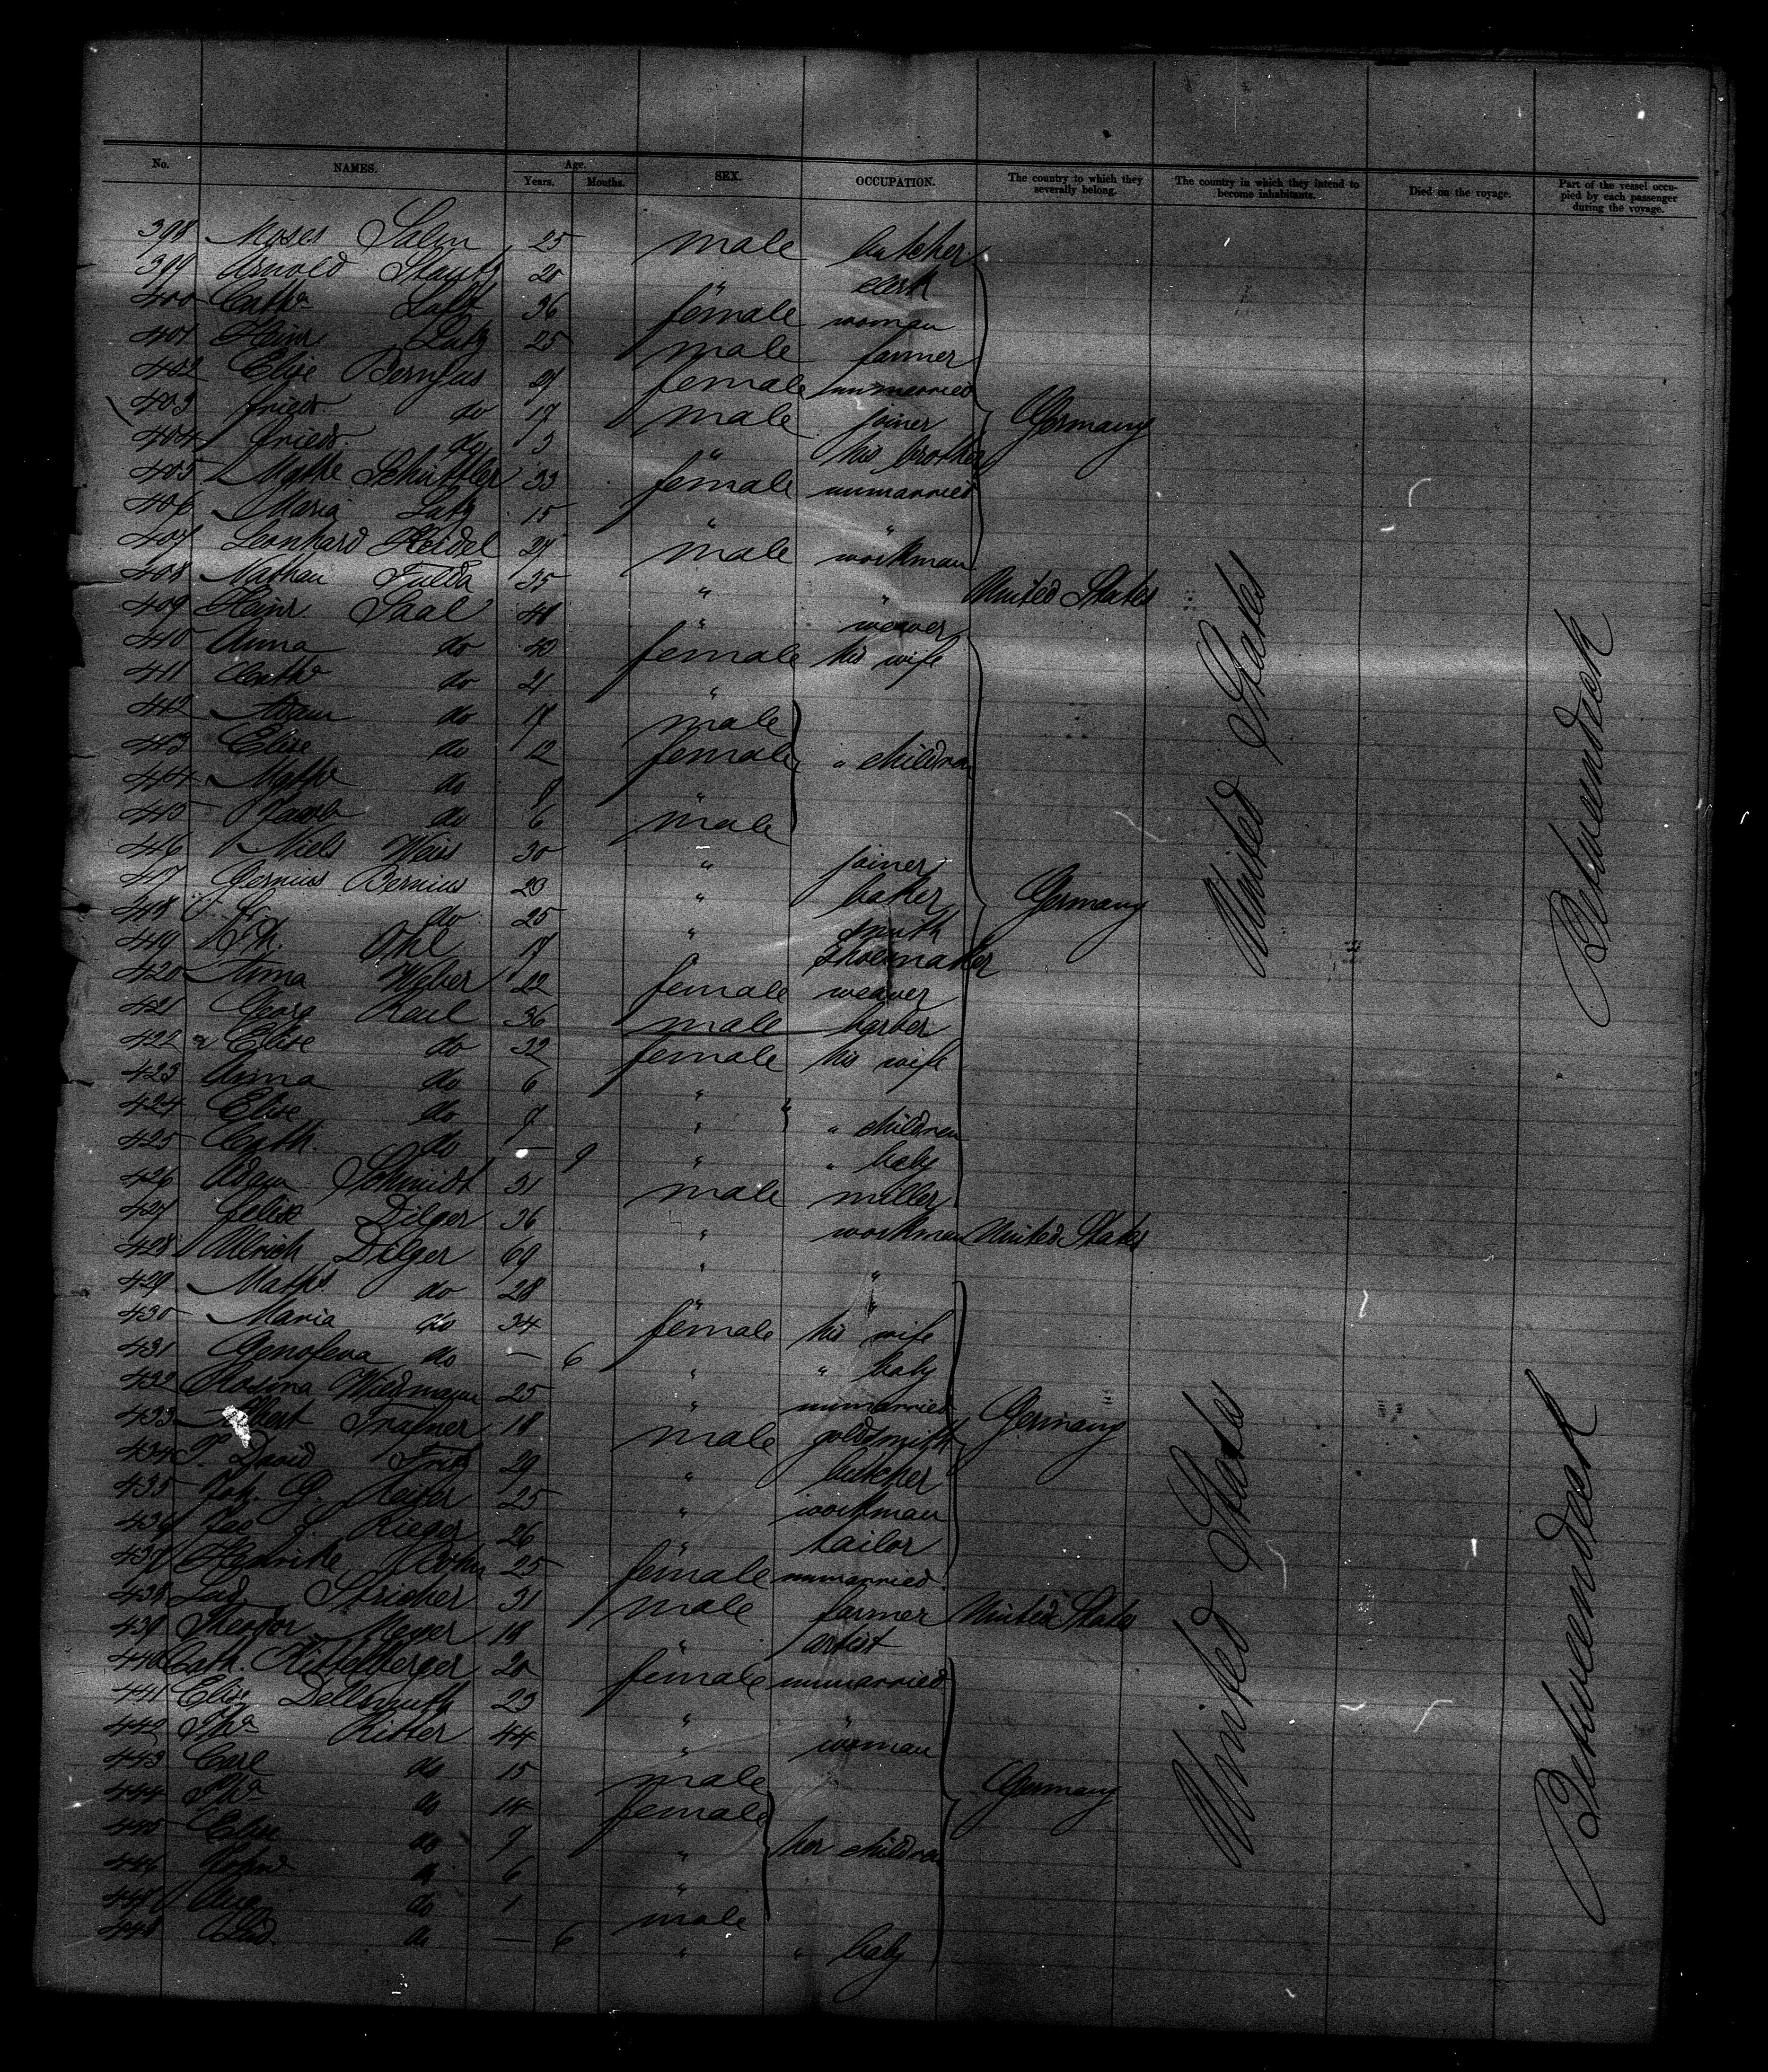 No. NAMES. Age. Years. Months. SEX. OCCUPATION. The country to which they severally belong. The country in which they intend to become inhabitants. Died on the voyage. Part of the vessel occupied by each passenger during the voyage.
398 Moses Salm 25 male butcher
399 Arnold 20 " clerk
400 Cath 36 female woman
401 Heinr. Latz 25 male farmer
402 Elise Bernius female unmarried
403 Friedr. do 17 male joiner Germany
404 Friedr. do 3 " his brother
405 Schüttler 33 female unmarried
406 Maria Latz 15 " "
407 Leonhard Heidel 24 male workman
408 Nathan Fulda 35 " " United States
409 Heinr. Saal 48 " weaver
410 Anna do 40 female his wife
411 Cath do 21 "
412 Adam do 17 male
413 Elise do 12 female " children
414 do 9 "
415 Jacob do 6 male
416 Niels Weis 30 " joiner
417 Bernius 23 " baker Germany
418 do 25 " smith
419 Ohl 17 shoemaker
420 Anna Weber 22 female weaver
421 Georg Keul 36 male barber
422 Elise do 32 female his wife
423 Anna do 6 "
424 Elise do " " children
425 Cath. do — 9 " " baby
426 Adam Schmidt 31 male miller
427 Dilger 36 " workman United States
428 Ulrich Dilger 69 " "
429 Maths. do 28 " "
430 Maria do 34 female his wife
431 Genofeva do — 6 " " baby
432 Rosina Wiedmann 25 " unmarried Germany
433 Albert Trafner 18 male goldsmith
434 David Fritz 29 " butcher
435 Joh. G. Kaiser 25 " workman
436 Jac Rieger 26 " tailor
437 25 female unmarried
438 Stricher 31 male farmer United States
439 Theodor Meyer 18 " artist
440 Cath. Kittelberger 20 female unmarried
441 Elise Dellmuth 23 " "
442 Ritter 44 " woman
443 Carl do 15 male Germany
444 do 14 female
445 Elise do 9 " her children
446 do 6 "
447 Aug. do 1 male
448 do — 6 " " baby
United States
United States
Betweendeck
Betweendeck